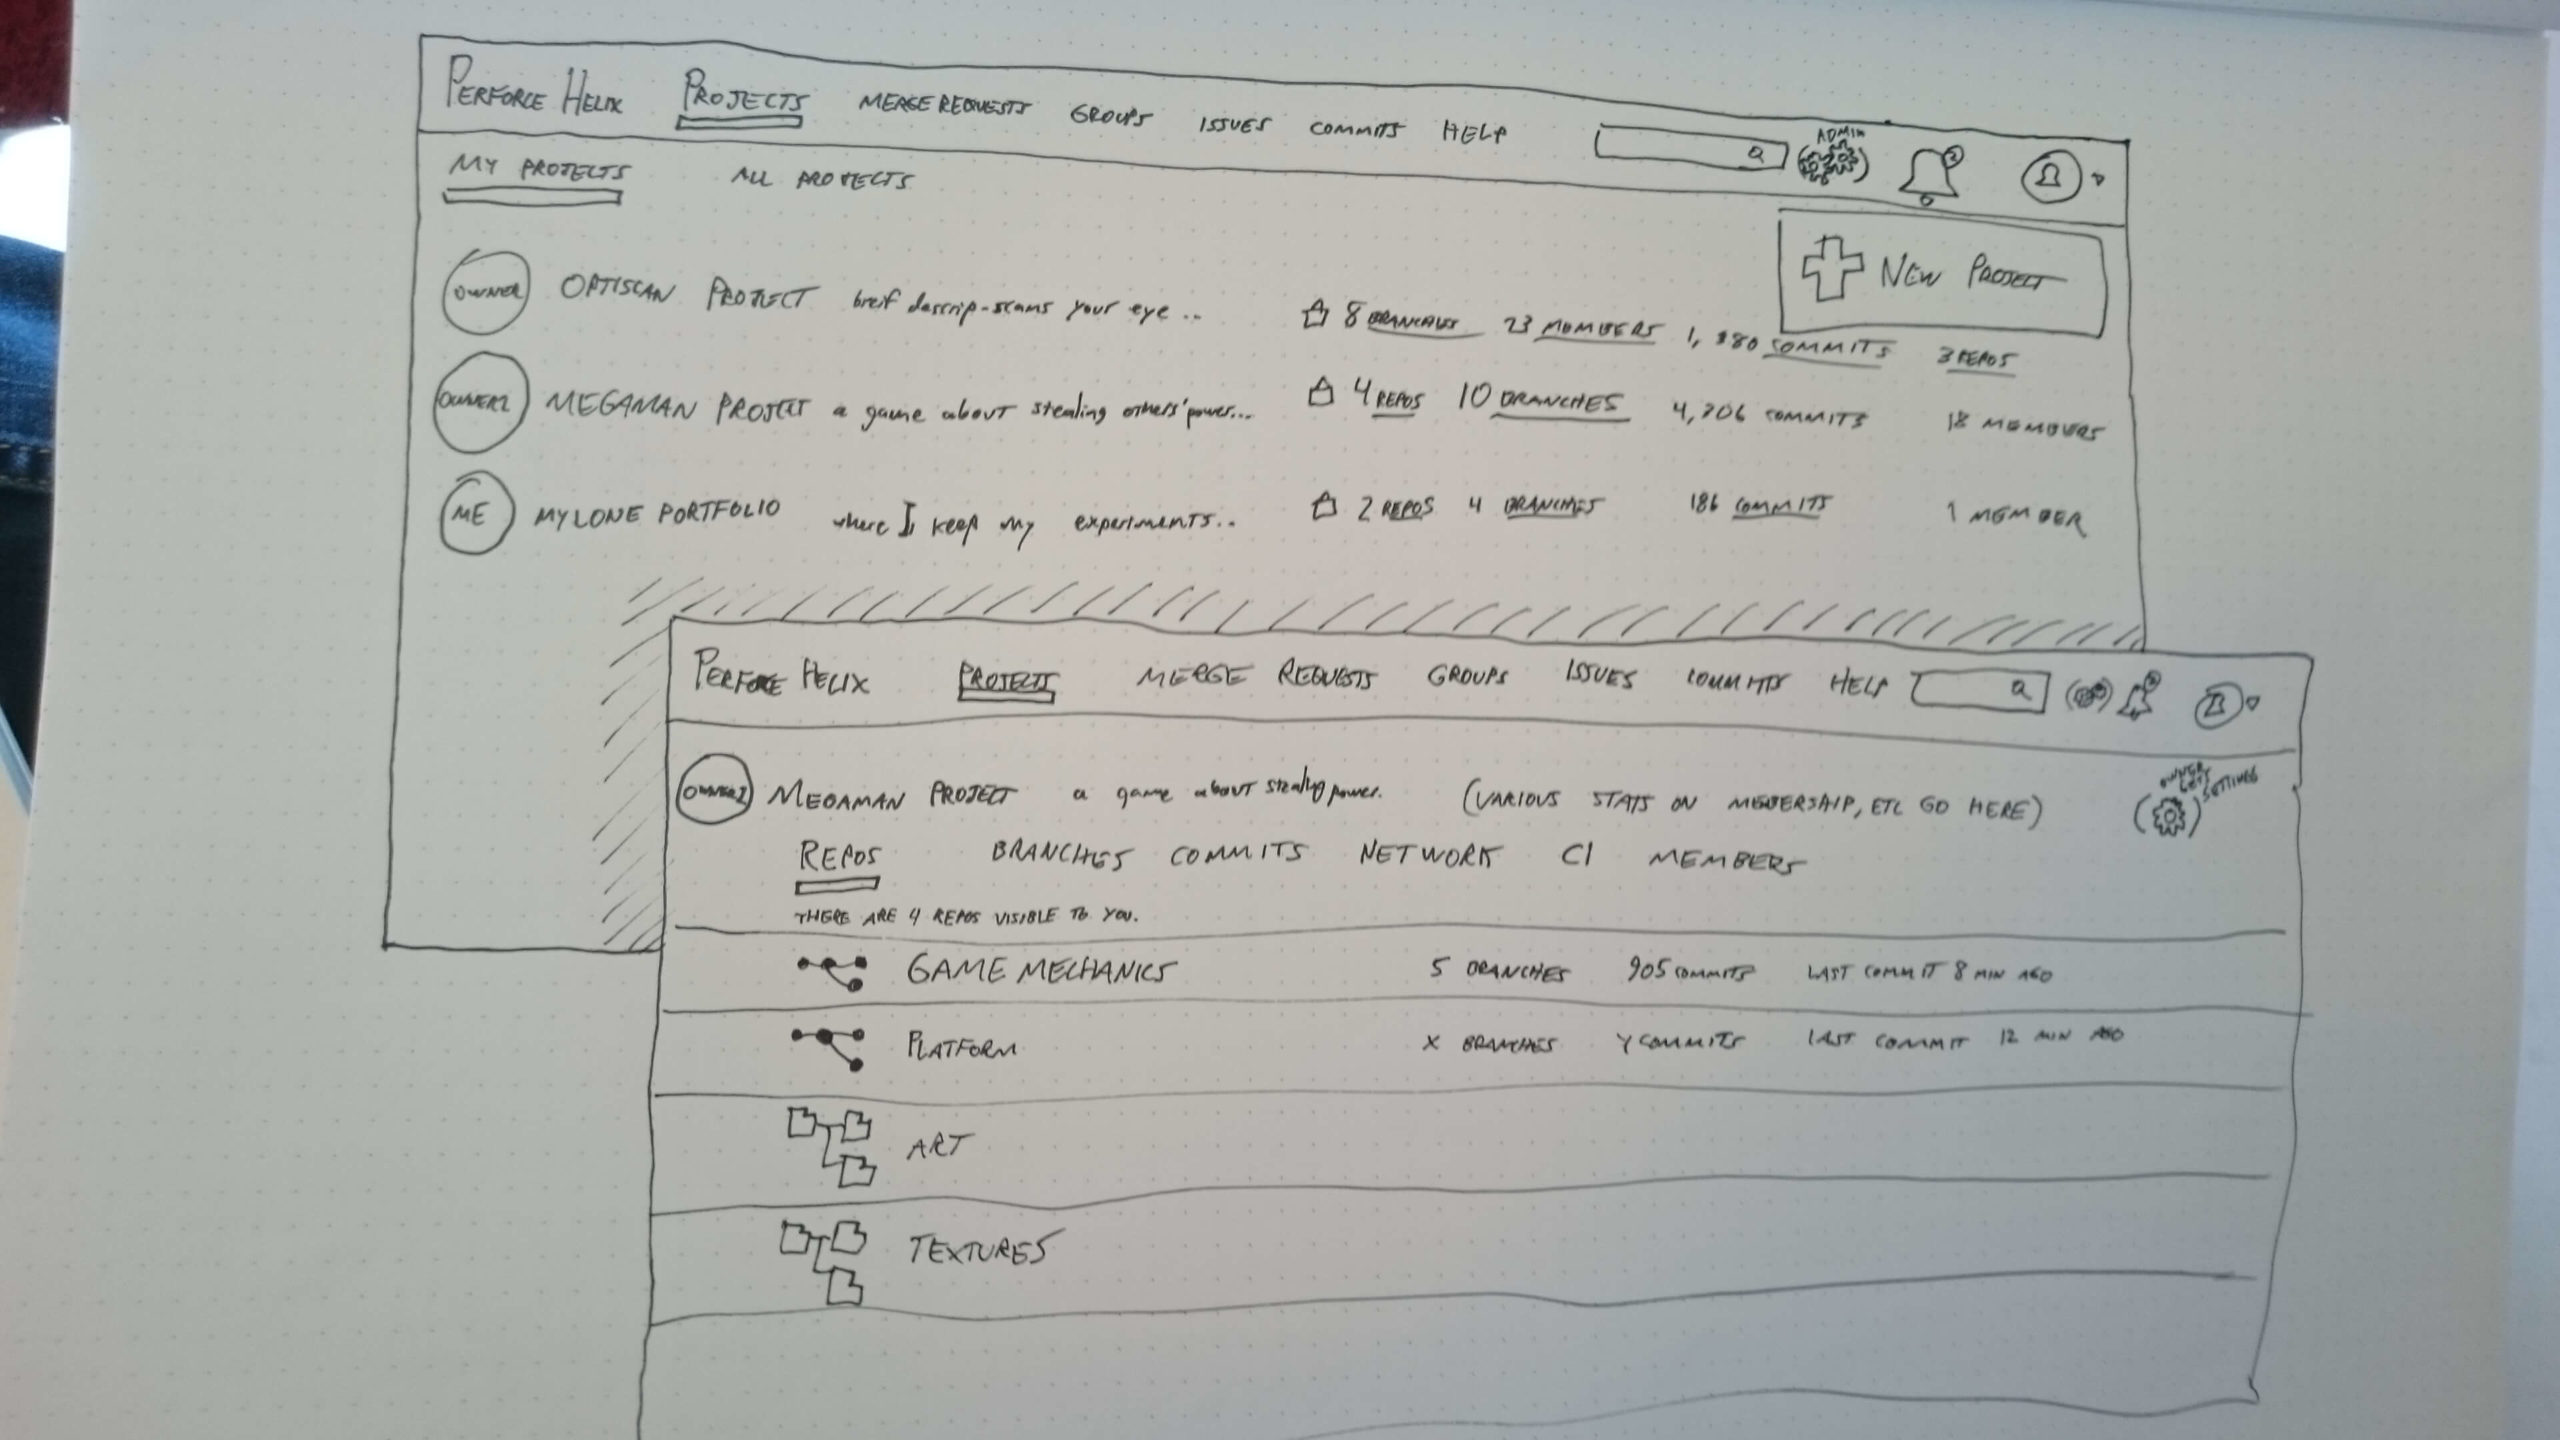 PERFORCE HELIX PROJECTS MERGE REQUESTS GROUPS ISSUES COMMITS HELP ADMIN
MY PROJECTS ALL PROJECTS
NEW PROJECT
OWNER OPTISCAN PROJECT breif descrip-scans your eye .. 8 BRANCHES 23 MEMBERS COMMITS 3 REPOS
OWNER2 MEGAMAN PROJECT a game about stealing others' power... 4 REPOS 10 BRANCHES 4,206 COMMITS 18 MEMBERS
ME MY LONE PORTFOLIO where I keep my experiments.. 2 REPOS 4 BRANCHES 186 COMMITS 1 MEMBER
PERFORCE HELIX PROJECTS MERGE REQUESTS GROUPS ISSUES COMMITS HELP
OWNER2 MEGAMAN PROJECT a game about stealing power. (VARIOUS STATS ON MEMBERSHIP, ETC GO HERE) OWNER GETS SETTINGS
REPOS BRANCHES COMMITS NETWORK CI MEMBERS
THERE ARE 4 REPOS VISIBLE TO YOU.
GAME MECHANICS 5 BRANCHES 905 COMMITS LAST COMMIT 8 MIN AGO
PLATFORM X BRANCHES Y COMMITS LAST COMMIT 12 MIN AGO
ART
TEXTURES